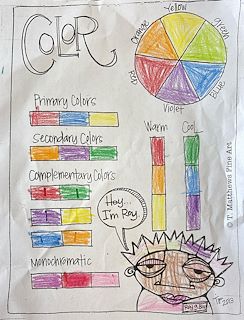 COLOR
Yellow
Orange
Green
Red
Blue
Violet
Primary Colors
Secondary Colors
Complementary Colors
Monochromatic
Warm
Cool
Hey...
I'm Roy.
Roy G. Biv
© T. Matthews Fine Art